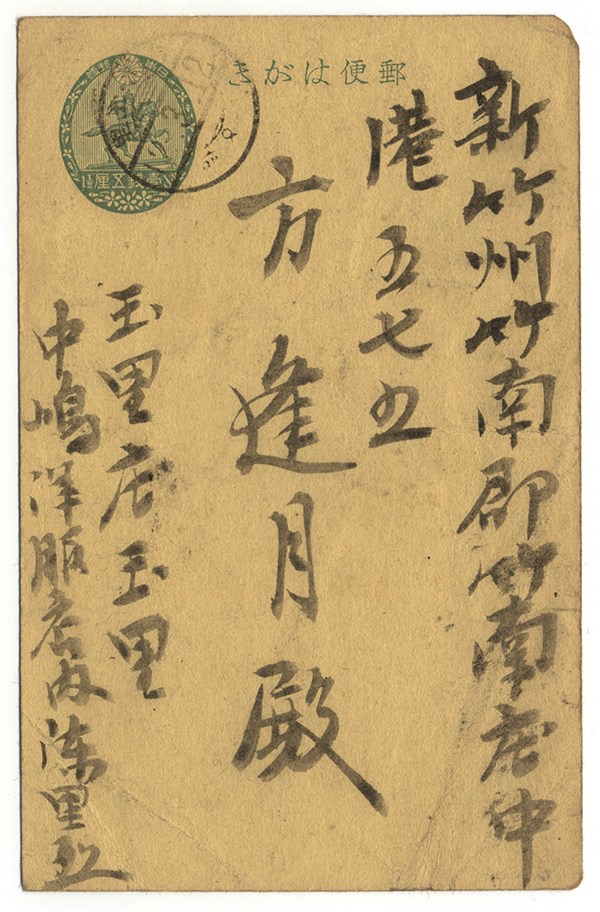 郵便はがき
壹錢五厘
新竹州竹南郡竹南庄中
港五七五
方逢月殿
玉里庄玉里
中嶋洋服店内陳里